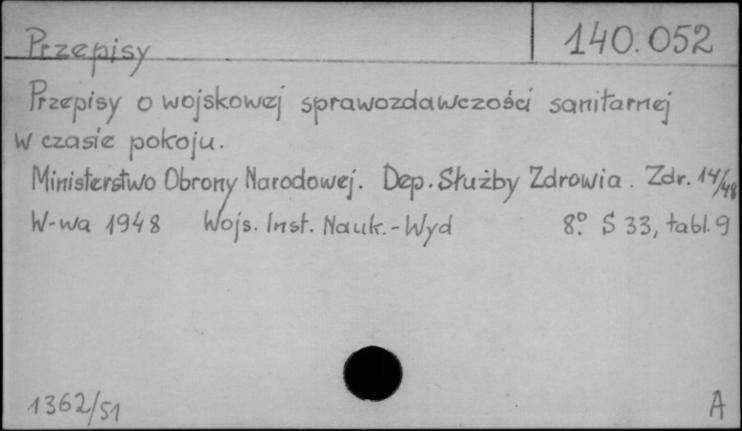 Przepisy 140.052
Przepisy o wojskowej sprawozdawczości sanitarnej
w czasie pokoju.
Ministerstwo Obrony Narodowej. Dep. Służby Zdrowia. Zdr. 14/48
W-wa 1948 Wojs. Inst. Nauk.-Wyd 8° S 33, tabl. 9
1362/51 A